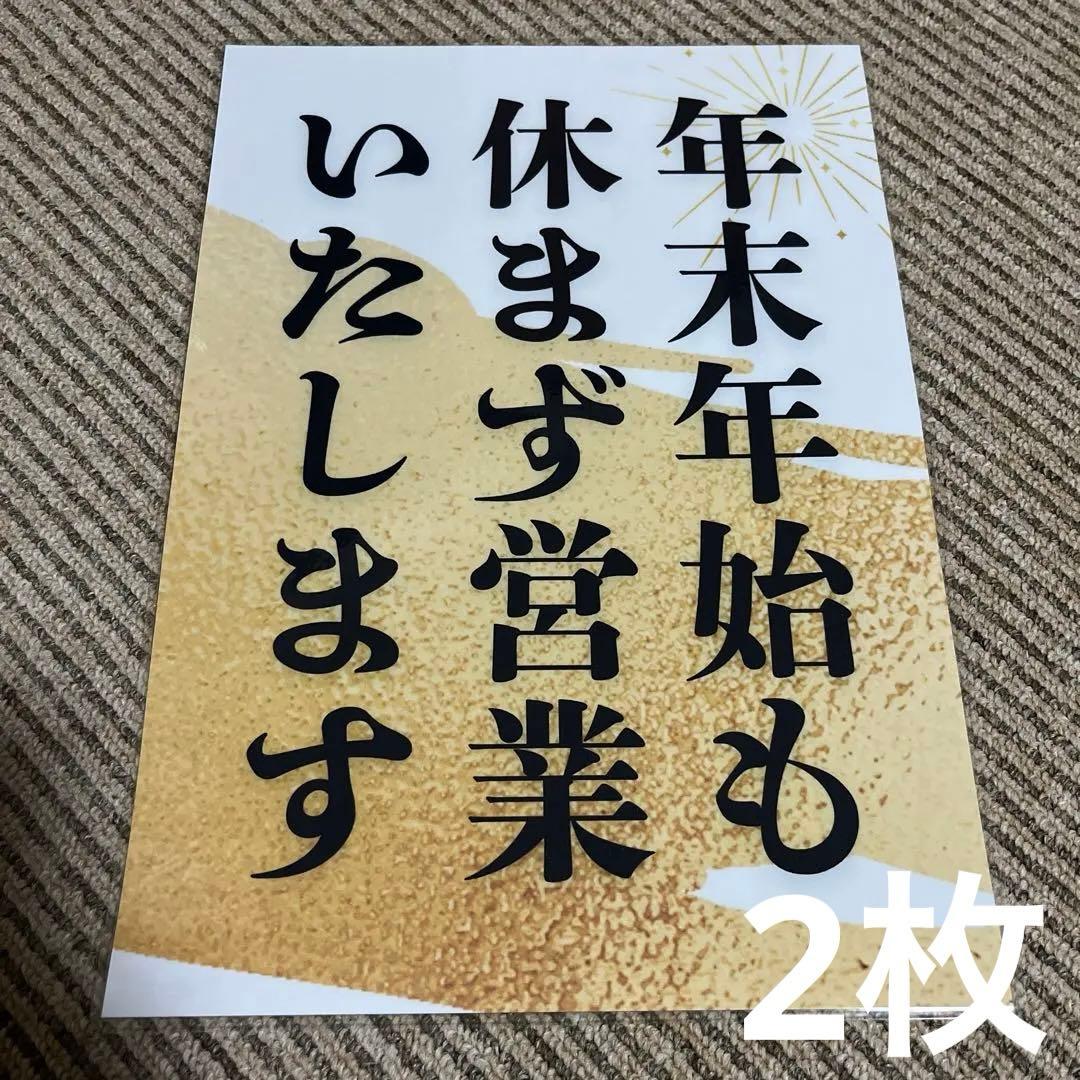 年末年始も
休まず営業
いたします
2枚